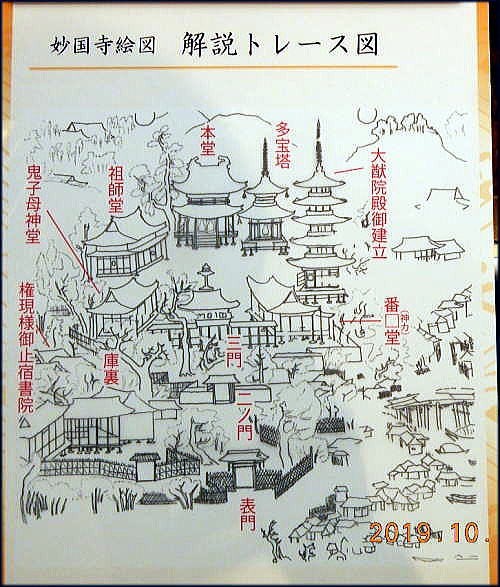 妙国寺絵図 解説トレース図
本堂
多宝塔
大猷院殿御建立
祖師堂
鬼子母神堂
権現様御止宿書院
庫裏
三門
二ノ門
番□堂(神力)
表門
2019 10.